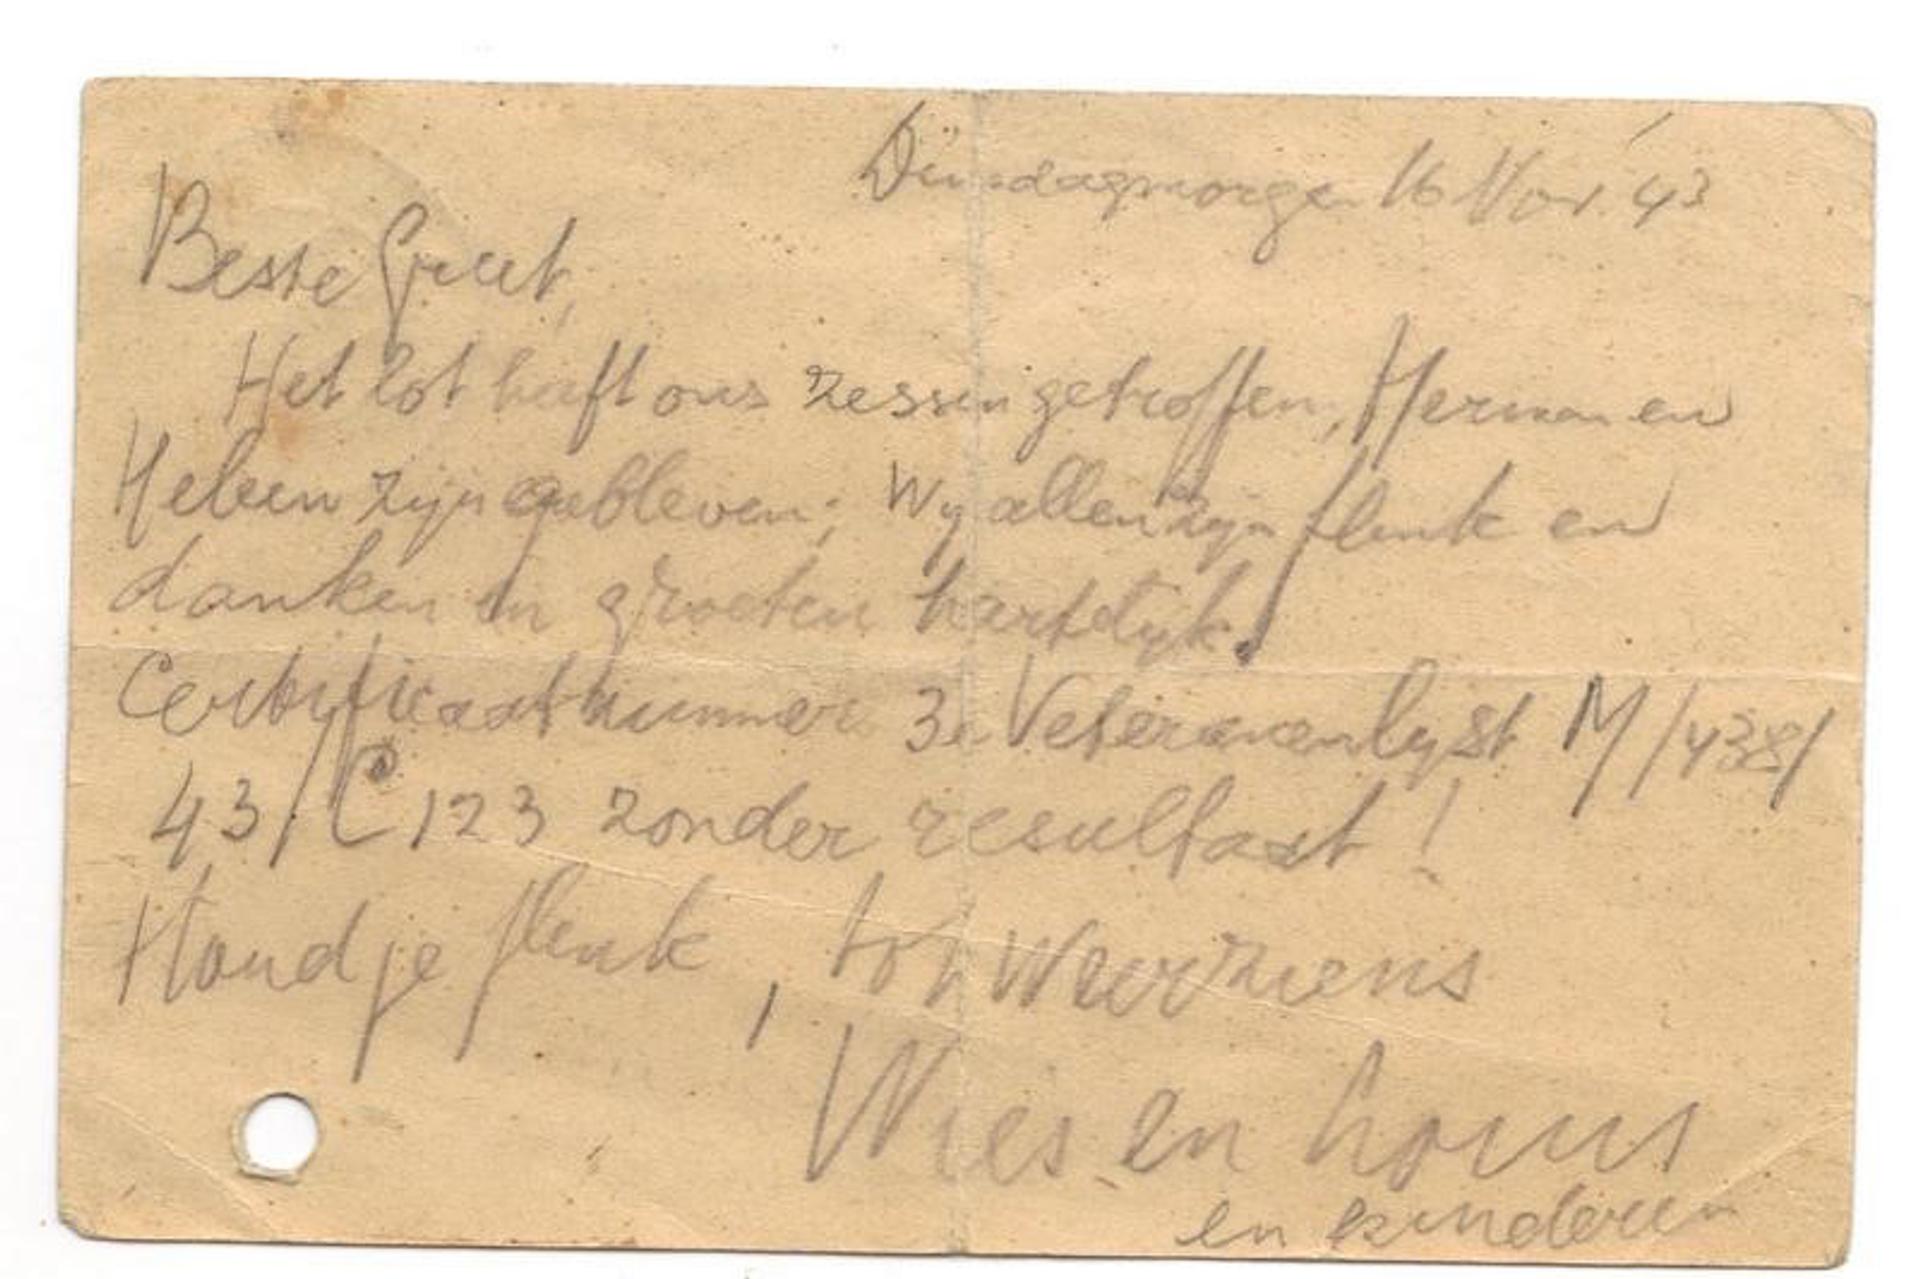 Dinsdagmorgen 16 Nov. '43
Beste Greet,
Het lot heeft ons zessen getroffen, Herman en
Heleen zijn gebleven; Wij allen zijn flink en
danken en groeten hartelijk.
Certificaatnummer 3e Veteranenlijst M/438/
43/C 123 zonder resultaat!
Houd je flink, tot weerziens
Wies en
en kinderen